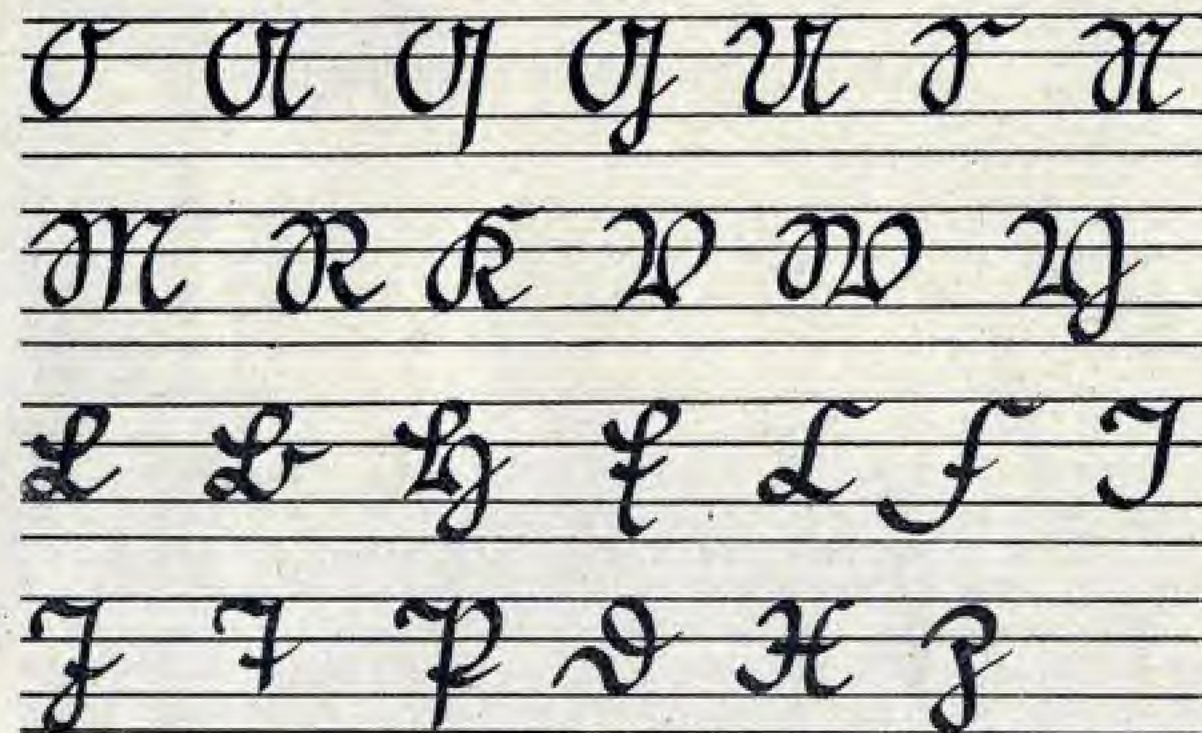 O A Q G U S N
M R K V W Y
L B H E C F I
J T P D X Z